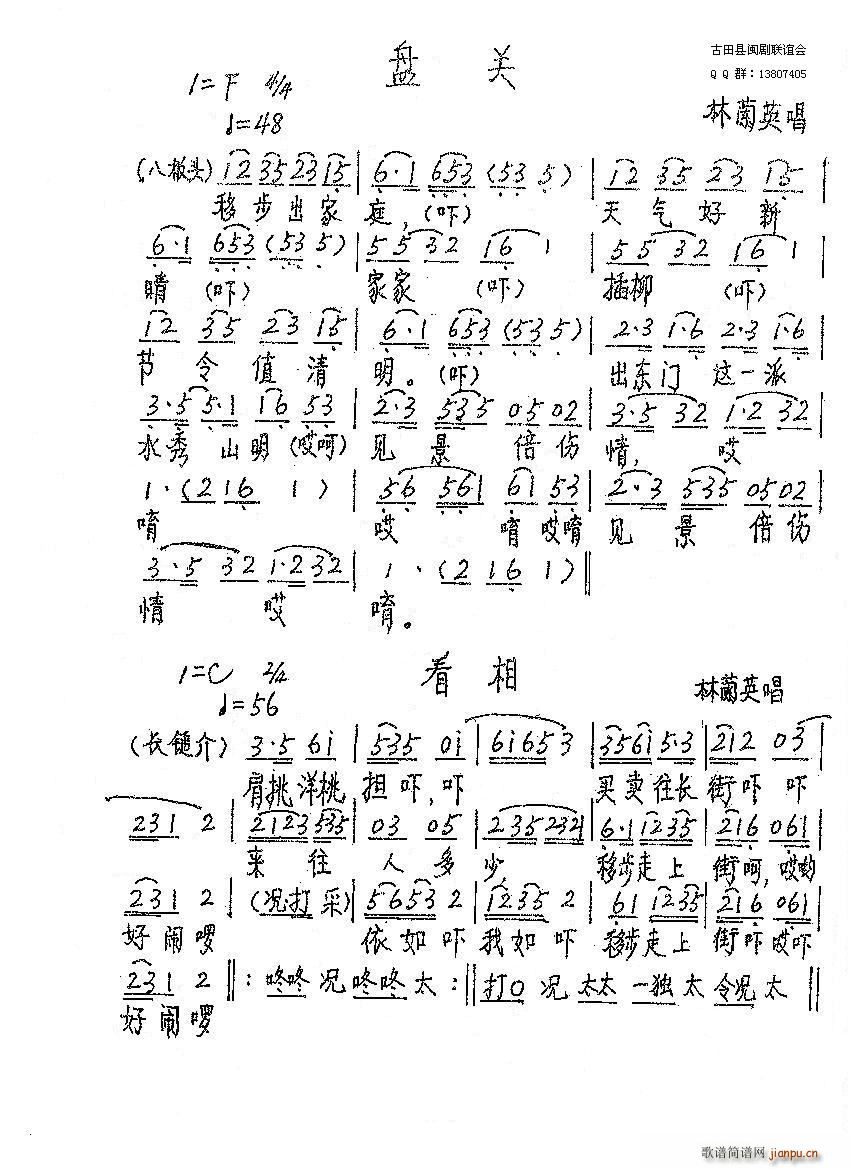 古田县闽剧联谊会
QQ群：13807405
盘关
1=F 4/4
♩=48
林蘭英唱
(八板头) 12 35 23 15 | 6·1 653 (53 5) | 12 35 23 15 |
移步出家 庭,(吓) 天气好新
6·1 653 (53 5) | 55 32 16 1 | 55 32 16 1 |
晴(吓) 家家(吓) 插柳(吓)
12 35 23 15 | 6·1 653 (53 5) | 2·3 1·6 2·3 1·6 |
节令值清 明。(吓) 出东门这一派
3·5 5·1 16 53 | 2·3 535 05 02 | 3·5 32 1·2 32 |
水秀山明(哎呵) 见景倍伤 情,哎
1·(2 16 1) | 56 561 61 53 | 2·3 535 05 02 |
唷 哎唷哎唷 见景倍伤
3·5 32 1·2 32 | 1·(2 16 1) ‖
情哎 唷。
1=C 2/4
♩=56
看相
林蘭英唱
(长鎚介) 3·5 6i | 535 0i | 6i65 3 | 356i 5·3 | 2i2 03 |
肩挑洋桃 担吓,吓 买卖往长街吓吓
231 2 | 2123 535 | 03 05 | 235 232 | 6·1 1235 | 216 061 |
来往人多少, 移步走上街呵,哎哟
231 2 | (况打采) | 5653 2 | 1235 2 | 61 1235 | 216 061 |
好闹啰 依如吓我如吓 移步走上街吓哎吓
231 2 ‖: 咚咚况咚咚太 :‖ 打0况太太一独太令况太 ‖
好闹啰
歌谱简谱网
jianpu.cn